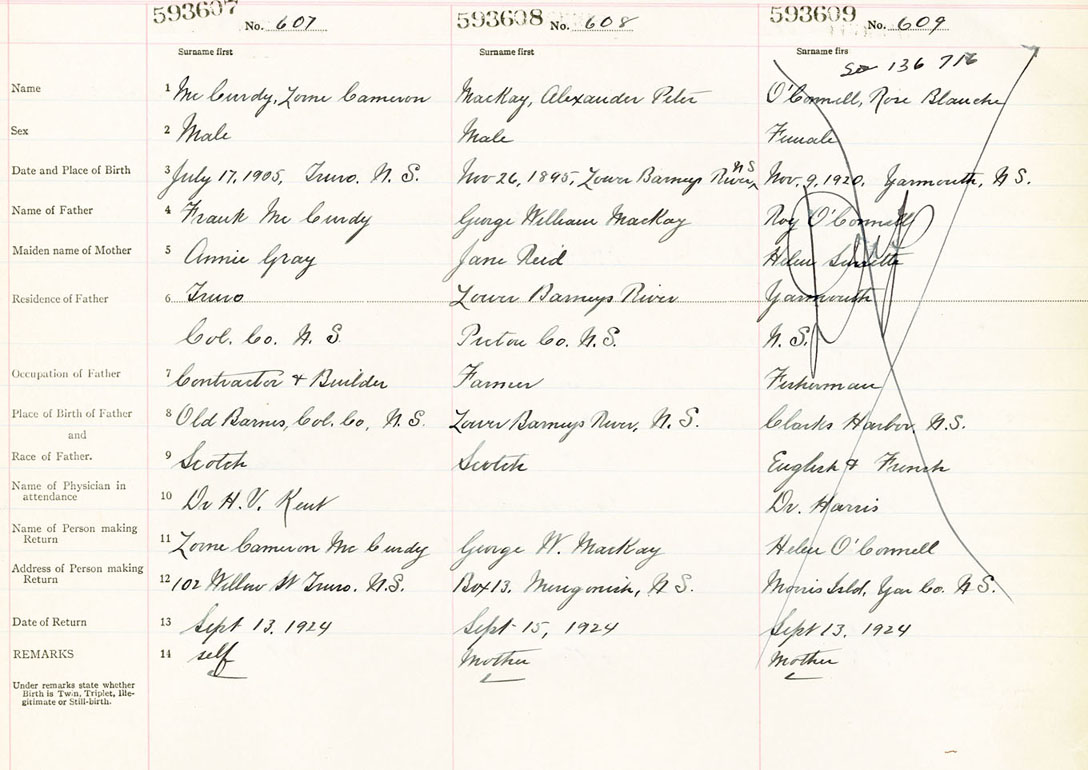 593607 No. 607 593608 No. 608 593609 No. 609
Surname first Surname first Surname firs
See 136 716
Name 1 McCurdy, Lorne Cameron MacKay, Alexander Peter O'Connell, Rose Blanche
Sex 2 Male Male Female
Date and Place of Birth 3 July 17, 1905, Truro. N.S. Nov 26, 1895, Lower Barneys River, N.S Nov. 9, 1920, Yarmouth, N.S.
Name of Father 4 Frank McCurdy George William MacKay Roy O'Connell
Maiden name of Mother 5 Annie Gray Jane Reid Helen Surrette
Residence of Father 6 Truro Lower Barneys River Yarmouth
Col. Co. N.S Pictou Co. N.S. N.S.
Occupation of Father 7 Contractor & Builder Farmer Fisherman
Place of Birth of Father 8 Old Barns, Col. Co, N.S. Lower Barneys River, N.S. Clarks Harbor, N.S.
and
Race of Father. 9 Scotch Scotch English & French
Name of Physician in
attendance 10 Dr H.V. Kent Dr. Harris
Name of Person making
Return 11 Lorne Cameron McCurdy George W. MacKay Helen O'Connell
Address of Person making
Return 12 102 Willow St Truro. N.S. Box 13, N.S. Morris Isld, Yar Co. N.S.
Date of Return 13 Sept 13, 1924 Sept 15, 1924 Sept 13, 1924
REMARKS 14 self Mother Mother
Under remarks state whether
Birth is Twin, Triplet, Ille-
gitimate or Still-birth.